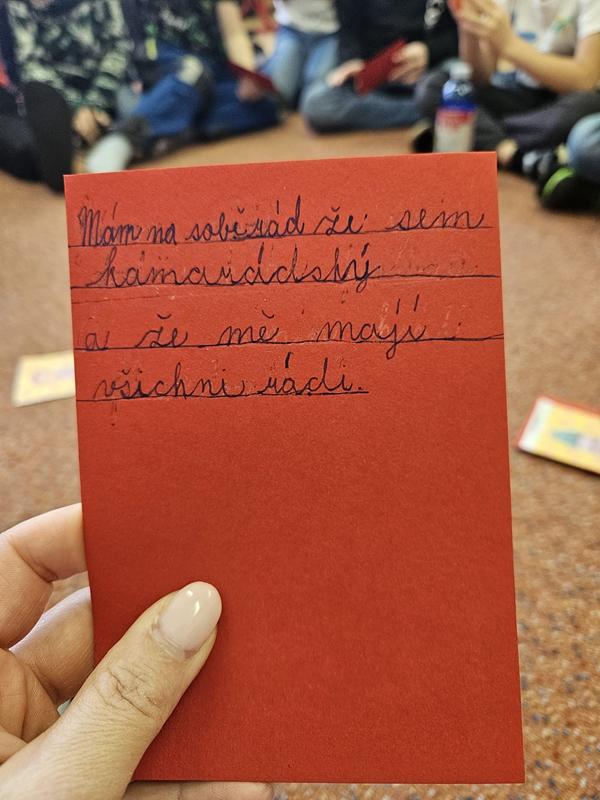 Mám na sobě rád že sem
kamarádský
a že mě mají
všichni rádi.